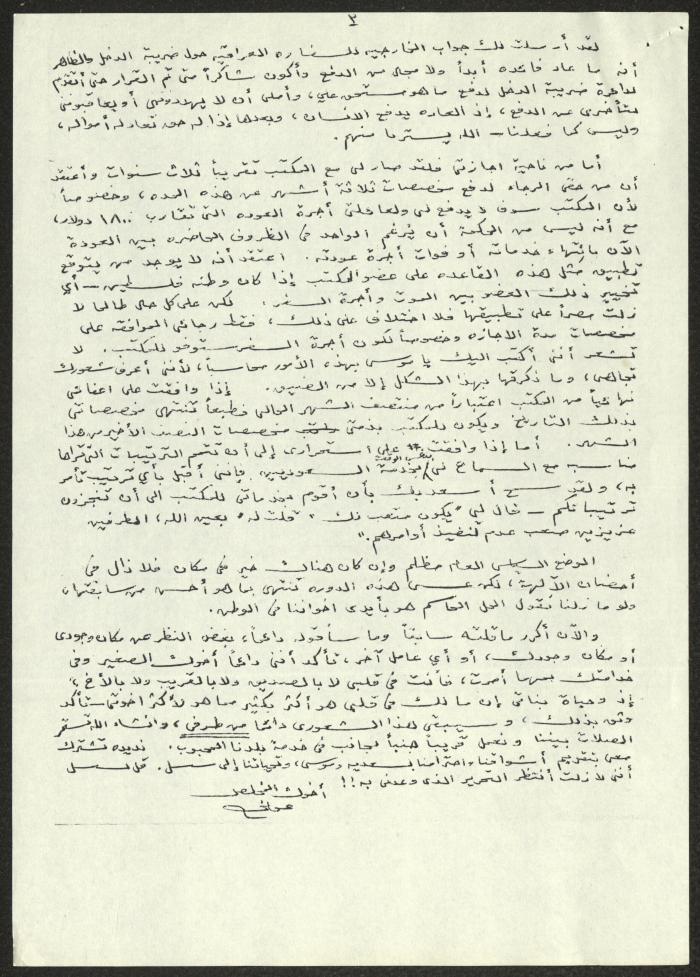 ٣
لقد أرسلت لك جواب الخارجيه للسفاره العراقيه حول ضريبة الدخل والظاهر
أنه ما عاد فائده أبداً ولا مجال من الدفع وأكون شاكراً متى تم القرار حتى أتقدم
لدائرة ضريبة الدخل لدفع ما هو مستحق علي، وأملي أن لا يهددوني أو يعاقبوني
لتأخري عن الدفع، إذ العاده يدفع الانسان، وبعدها إذا له حق تعاد له أمواله،
وليس كما فعلنا – الله يسترها منهم.
أما من ناحية اجازتي فلقد صار لي مع المكتب تقريباً ثلاث سنوات وأعتقد
أن من حقي الرجاء لدفع مخصصات ثلاثة أشهر عن هذه المده، وخصوصاً
لأن المكتب سوف لا يدفع لي ولعائلتي أجرة العوده التي تقارب ١٨٠٠ دولار،
مع أنه ليس من الحكمة أن يُرغم الواحد في الظروف الحاضره بين العودة
الآن بانتهاء خدماته أو فوات أجرة عودته. اعتقد أنه لا يوجد من يتوقع
تطبيق مثل هذه القاعده على عضو المكتب إذا كان وطنه فلسطين – أي
تخيير ذلك العضو بين الموت وأجرة السفر. لكن على كل حال طالما لا
زلت مصراً على تطبيقها فلا اختلاف على ذلك، فقط رجائي الموافقه على
مخصصات مدة الاجازه وخصوصاً لكون أجرة السفر ستوفر للمكتب. لا
تشعر أنني أكتب اليك يا موسى بهذه الأمور محاسباً، لأنني أعرف شعورك
تجاهي، وما ذكرتها بهذا الشكل إلا من الضيق. إذا وافقت على اعفائي
نهائياً من المكتب اعتباراً من منتصف الشهر الحالي فطبعاً تنتهي مخصصاتي
بذلك التاريخ ويكون للمكتب بذمتي مخصصات النصف الأخير من هذا
الشهر. أما إذا وافقت على استمراري إلى أن تتم الترتيبات التي تراها
مناسبه مع السماح لي بنفس الوقت بخدمة السعوديين فإنني أقبل بأي ترتيب تأمر
به، ولقد أسعد بك بأن أقوم بخدماتي للمكتب الى أن تنجزون
ترتيباتكم – قال لي "يكون متعب لك" قلت له "بعين الله، الطرفين
عزيزين صعب عدم تنفيذ أوامرهم."
الوضع السياسي العام مظلم وإن كان هنالك خير في مكان فلا زال في
أحضان الآلهة، لكن عسى هذه الدوره تنتهي بما هو أحسن من سابقتها،
ولو ما زلنا نقول الحل الحاسم هو بأيدي اخواننا في الوطن.
والآن أكرر ما قلته سابقاً وما سأقوله دائماً، بغض النظر عن مكان وجودي
أو مكان وجودك، أو أي عامل آخر، تأكد أنني دائماً أخوك الصغير وفي
خدامتك بمهما أمرت، فأنت في قلبي لا بالصديق ولا بالقريب ولا بالأخ،
إذ وحياة بناتي إن مالك في قلبي هو أكثر بكثير مما هو لأكثر اخوتي ستأكد
وثق بذلك، وسيبقى هذا الشعوري دائماً من طرفي، وانشاء الله تستقر
الصلات بيننا ونعمل قريباً جنباً لجانب في خدمة بلدنا المحبوب. نديده تشترك
معي بتقديم أشواقنا واحترامنا لسعديه وموسى، وتحياتنا إلى سل. قل لسل
أنني لا زلت أنتظر التحرير الذي وعدني به!!
أخوك المخلص
عوني